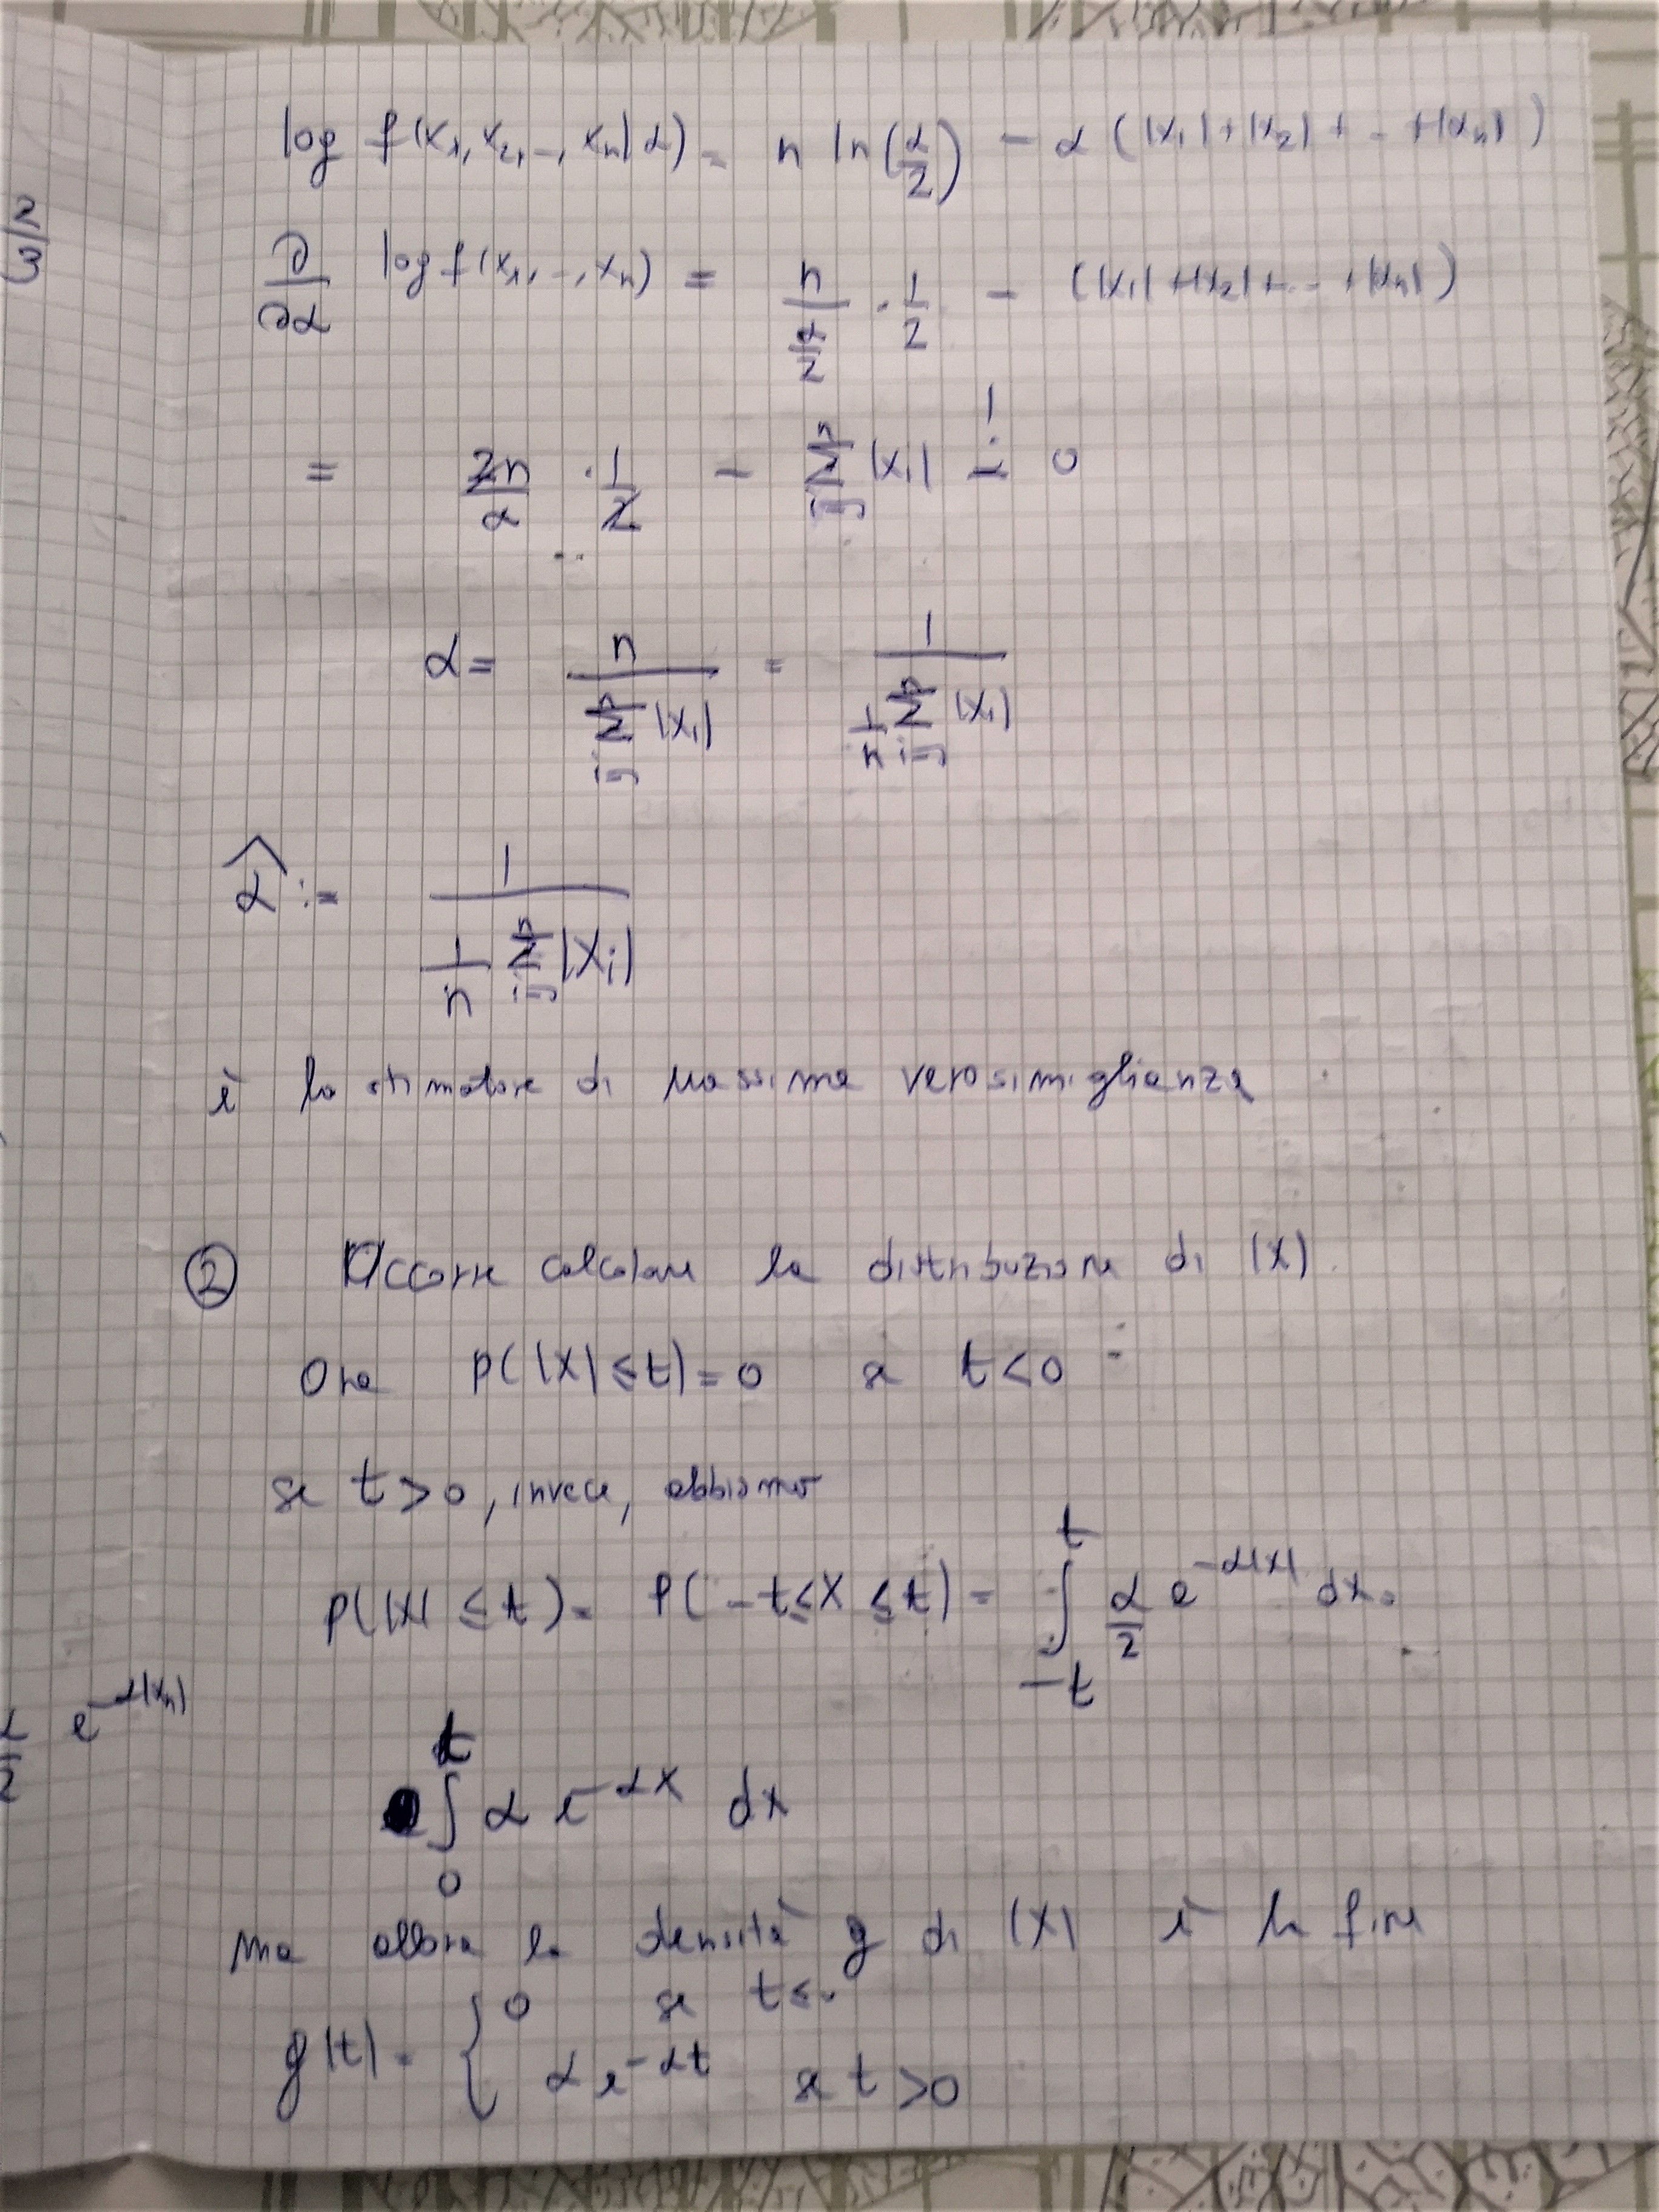 log f(x₁, x₂, .., xₙ|α) = n ln(α/2) - α (|x₁|+|x₂|+ .. +|xₙ|)
∂/∂α log f(x₁, .., xₙ) = n/(α/2) · 1/2 - (|x₁|+|x₂|+ .. +|xₙ|)
= 2n/α · 1/2 - Σ |xᵢ| =! 0
α = n / Σ |xᵢ| = 1 / (1/n Σ |xᵢ|)
α̂ := 1 / (1/n Σ |Xᵢ|)
è lo stimatore di massima verosimiglianza
② Occorre calcolare la distribuzione di |X|.
Ora P(|X| ≤ t) = 0 se t < 0
se t > 0, invece, abbiamo
P(|X| ≤ t) = P(-t ≤ X ≤ t) = ∫₋ₜᵗ α/2 e^{-α|x|} dx =
∫₀ᵗ α e^{-αx} dx
ma allora la densità g di |X| è la fine
g(t) = { 0 se t ≤ 0
α e^{-αt} se t > 0
2/3
α/2 e^{-α|xₙ|}